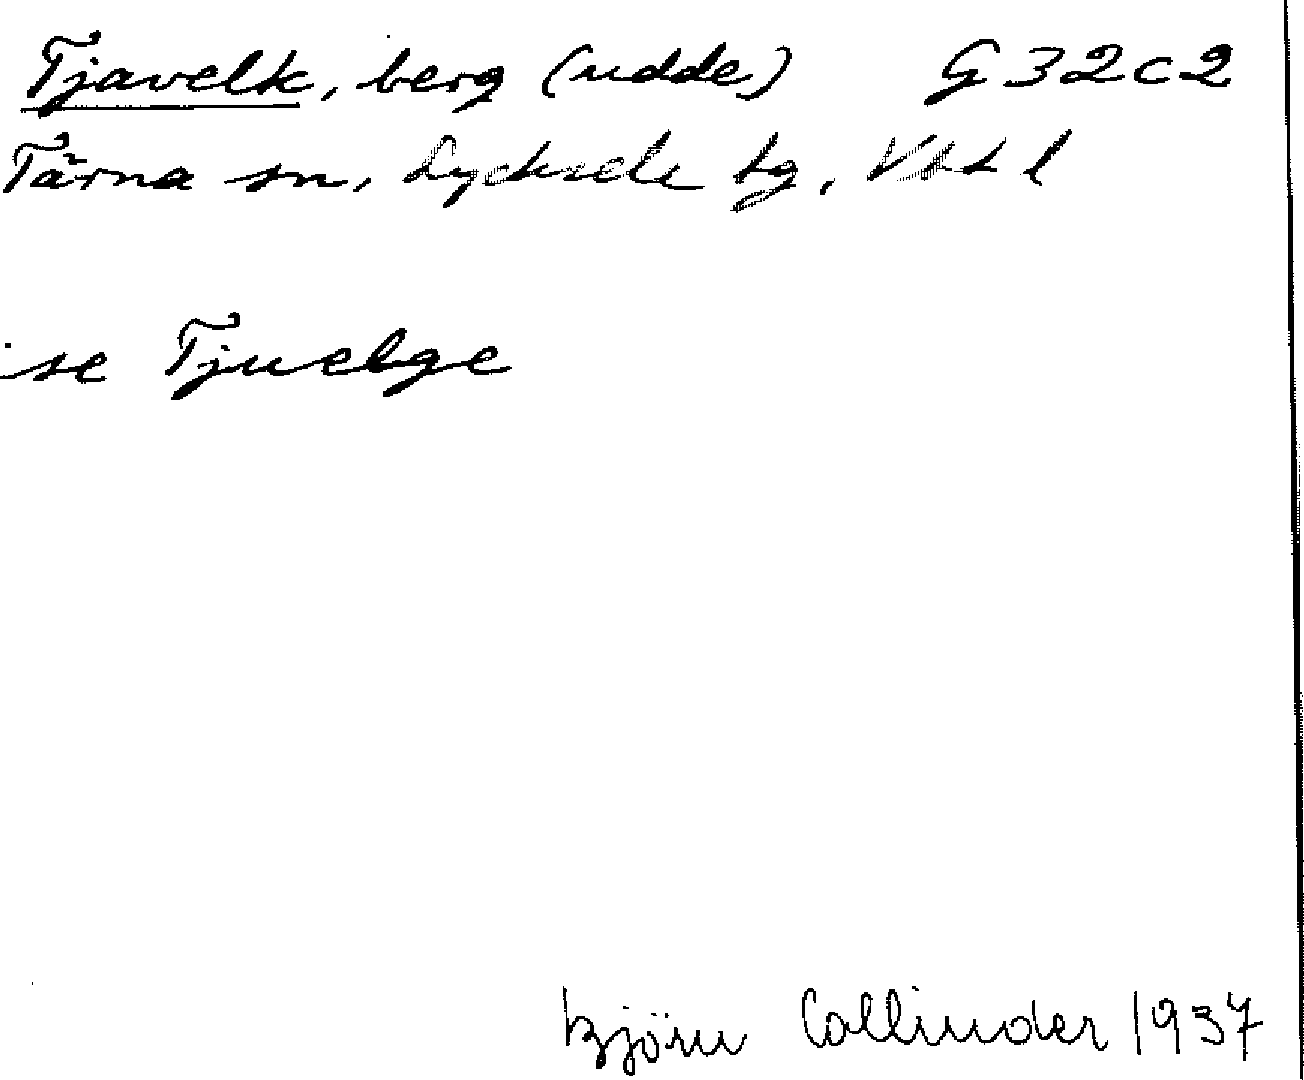 Tjavelk, berg (udde) G32c2
Tärna sn, Lycksele tg, Vb l
se Tjuelge
Björn Collinder 1937